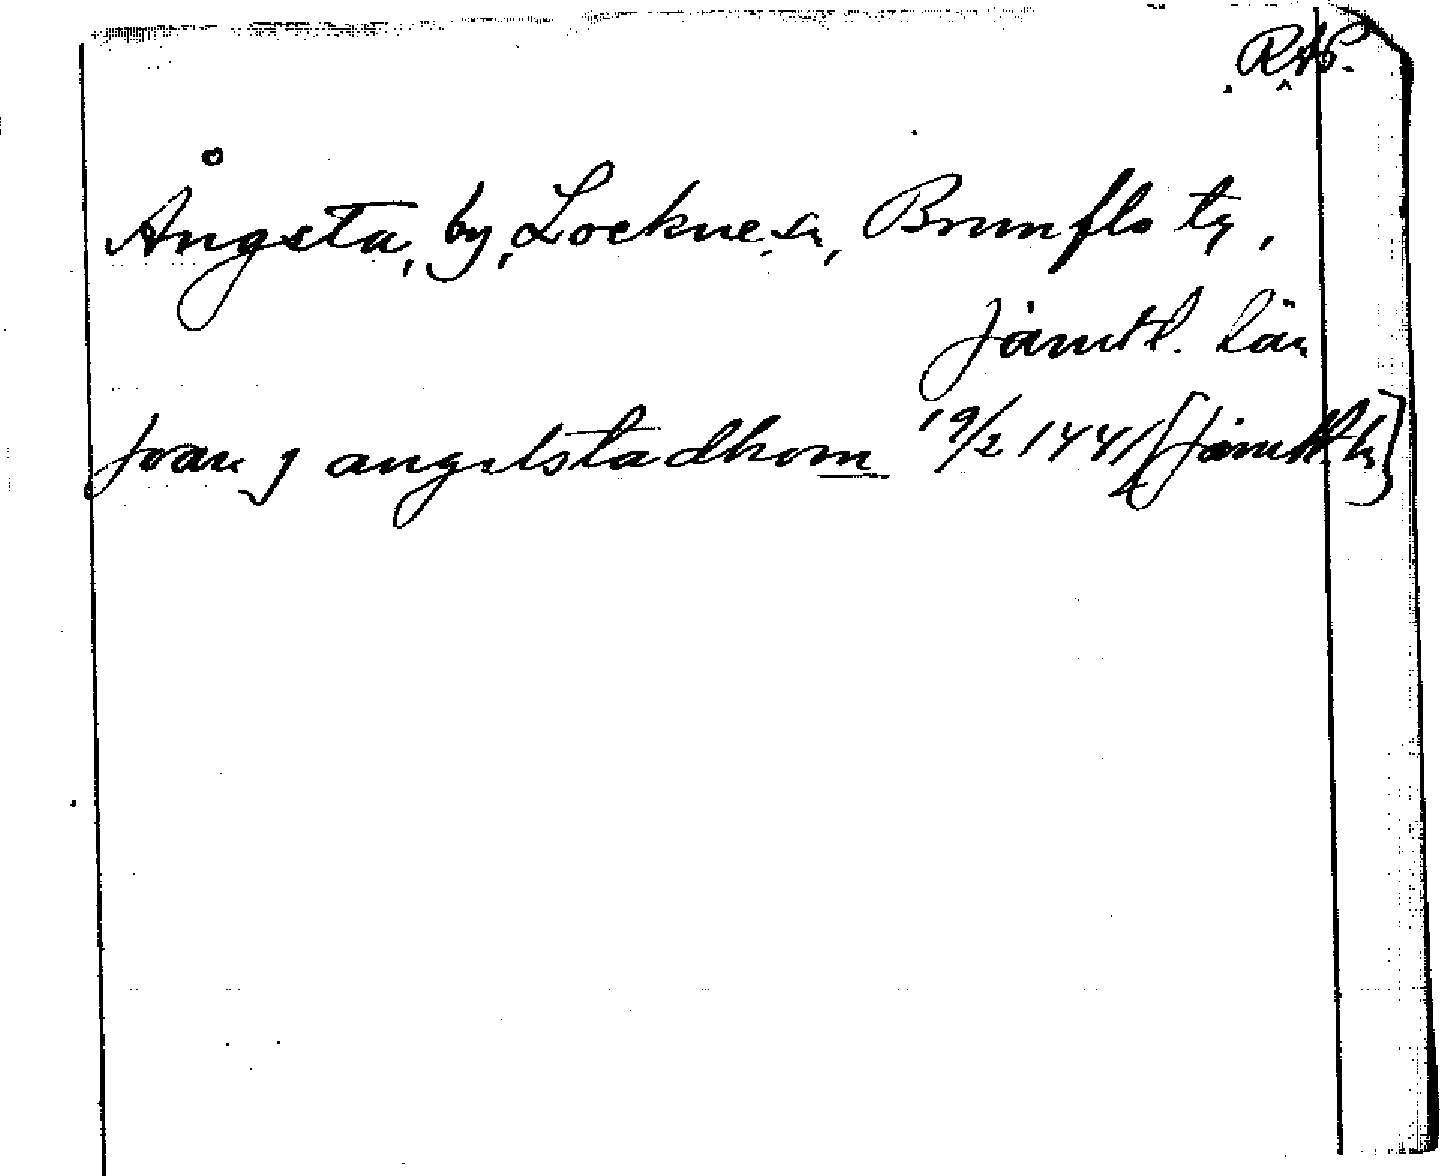 Ångsta, by, Lockne sn, Brunflo tg,
Jämtl. län
Joan j angilstadhom 19/2 1441 [Jämtl. h]